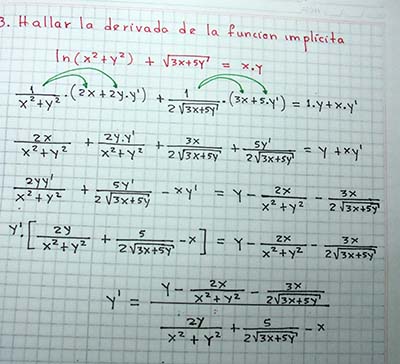 3. Hallar la derivada de la funcion implicita
ln(x²+y²) + √(3x+5y) = x.y
1/(x²+y²) · (2x+2y.y') + 1/(2√(3x+5y)) · (3x+5.y') = 1.y+x.y'
2x/(x²+y²) + 2y.y'/(x²+y²) + 3x/(2√(3x+5y)) + 5y'/(2√(3x+5y)) = y+xy'
2yy'/(x²+y²) + 5y'/(2√(3x+5y)) - xy' = y - 2x/(x²+y²) - 3x/(2√(3x+5y))
y'.[2y/(x²+y²) + 5/(2√(3x+5y)) - x] = y - 2x/(x²+y²) - 3x/(2√(3x+5y))
y' = (y - 2x/(x²+y²) - 3x/(2√(3x+5y))) / (2y/(x²+y²) + 5/(2√(3x+5y)) - x)